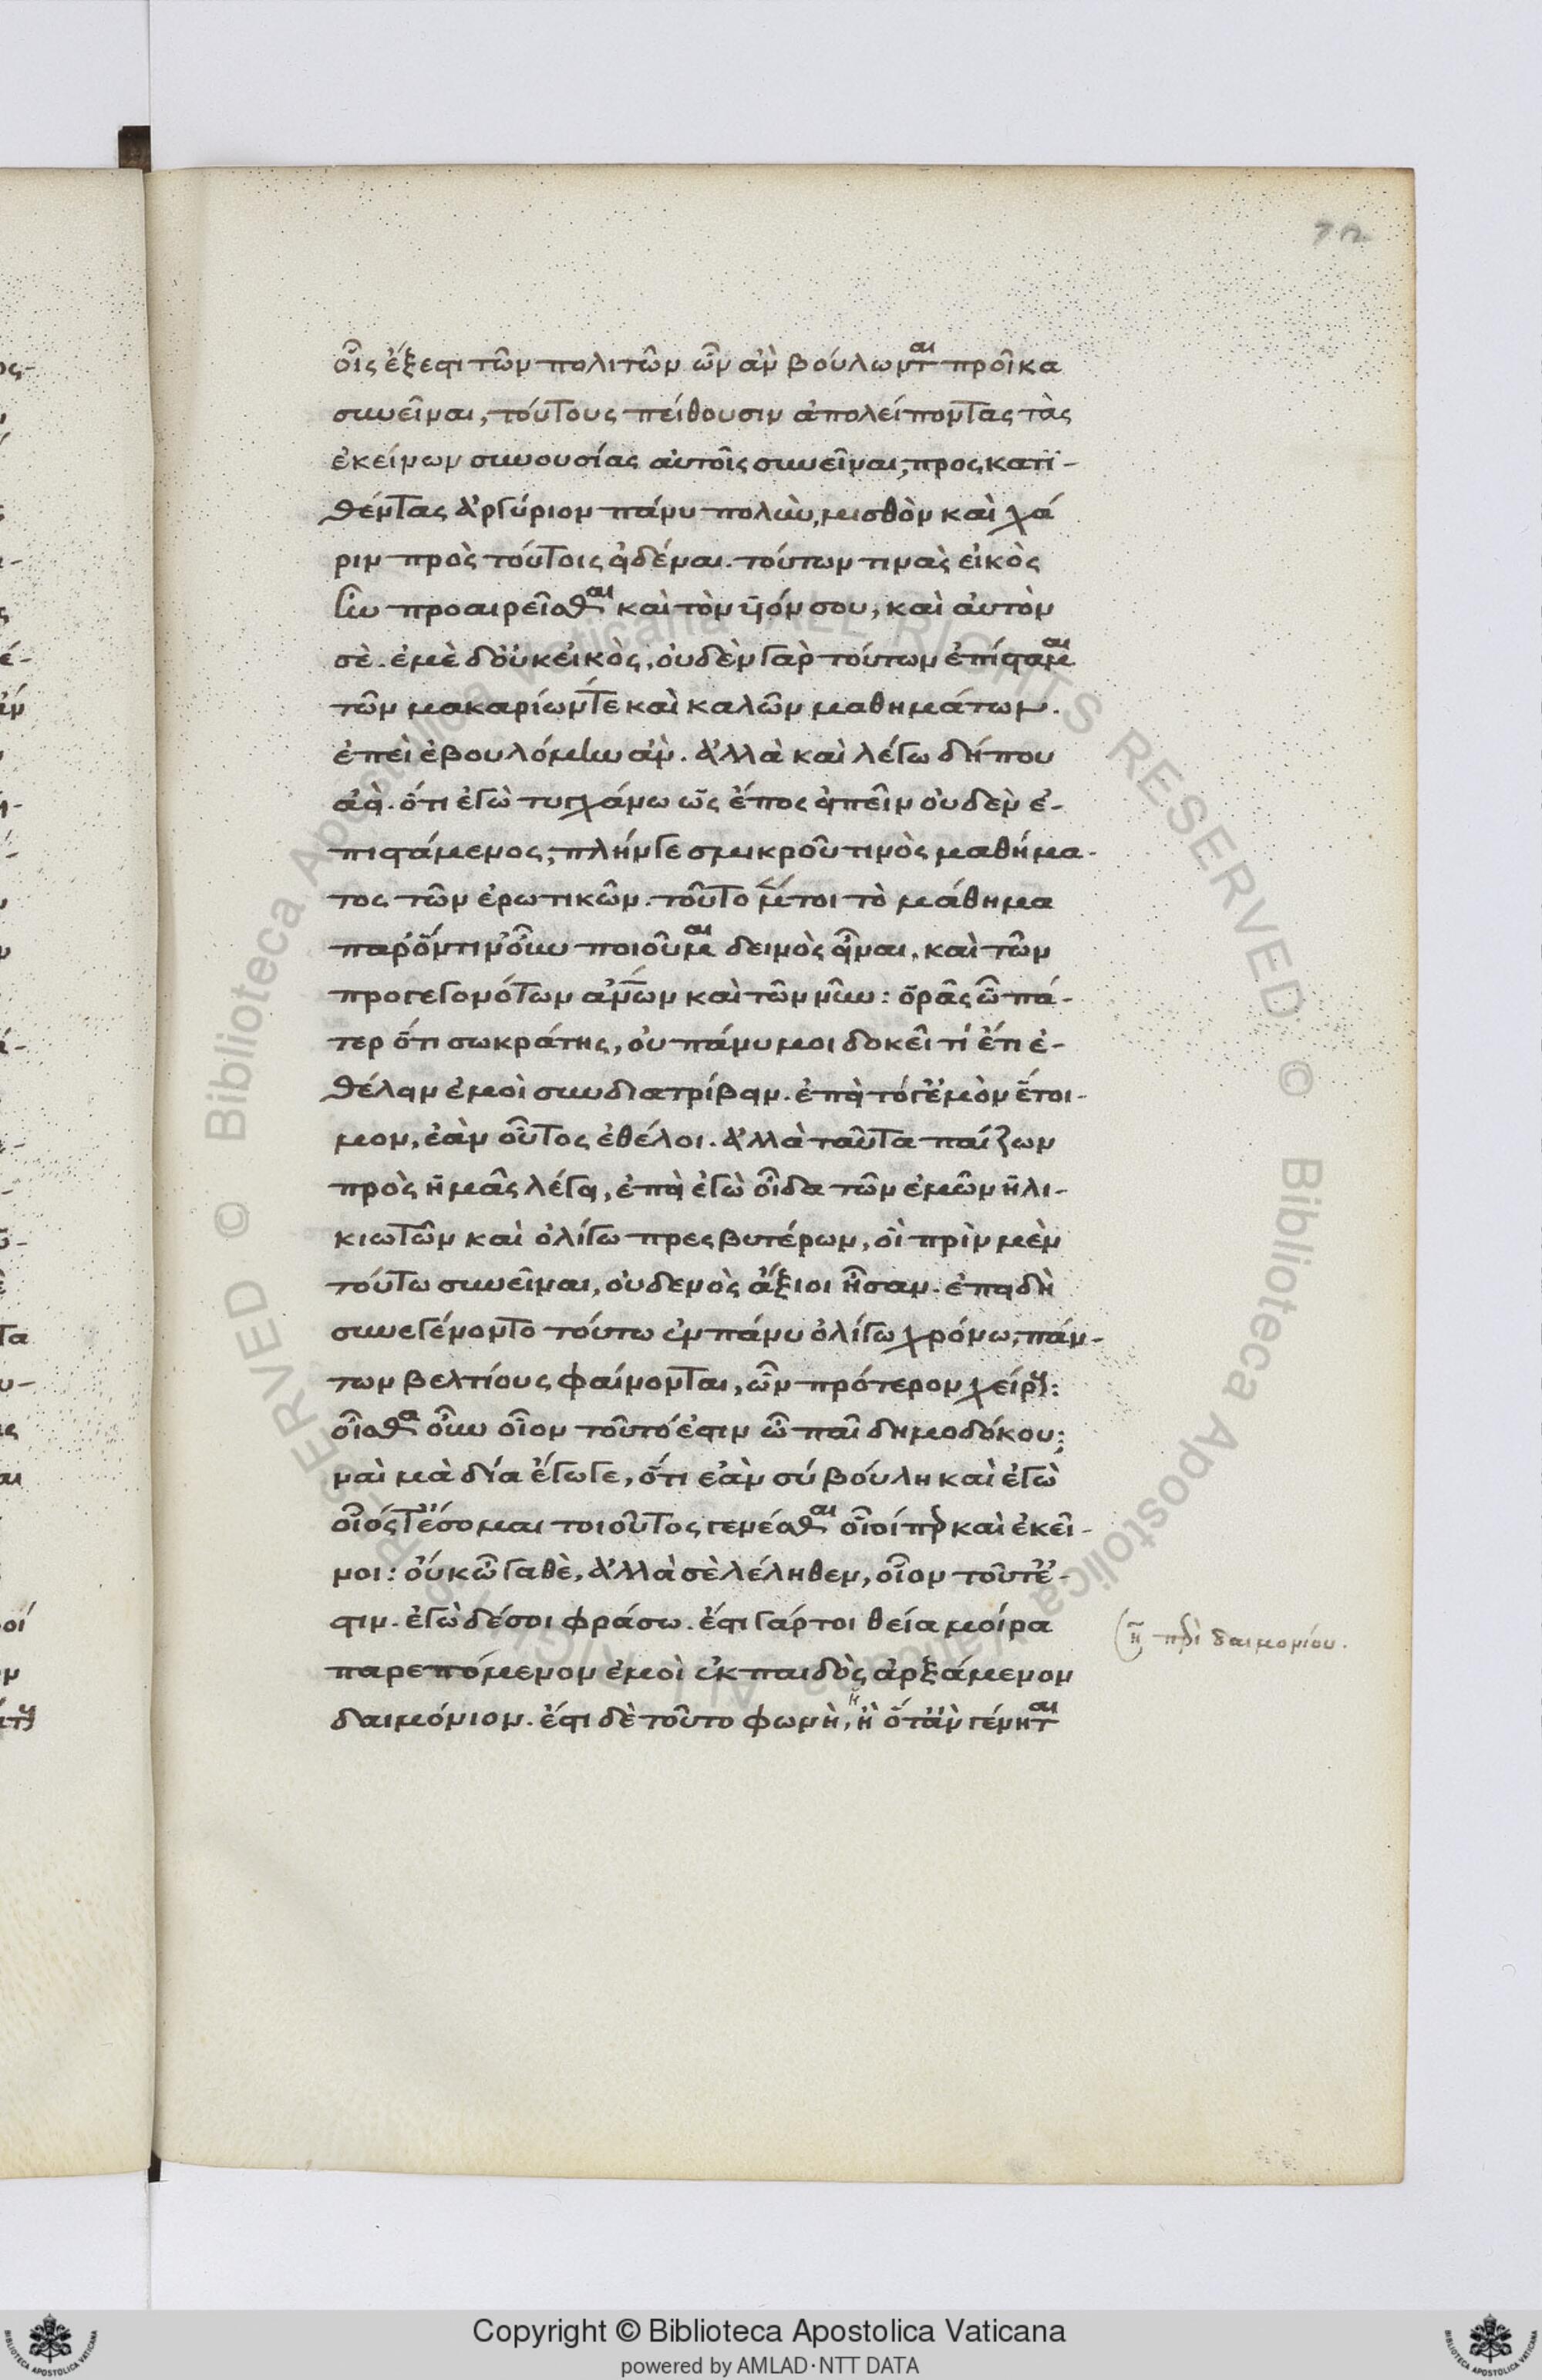 72
οἷς ἔξεστι τῶν πολιτῶν ὧν ἂν βούλωνται προῖκα
συνεῖναι, τούτους πείθουσιν ἀπολείποντας τὰς
ἐκείνων συνουσίας αὐτοῖς συνεῖναι, προςκατι-
θέντας ἀργύριον πάνυ πολὺ, μισθὸν καὶ χά
ριν πρὸς τούτοις εἰδέναι. τούτων τινὰς εἰκὸς
ἦν προαιρεῖσθαι καὶ τὸν ὑϊόν σου, καὶ αὐτὸν
σὲ. ἐμὲ δ' οὐκ εἰκὸς, οὐδὲν γὰρ τούτων ἐπίσταμαι
τῶν μακαρίων τε καὶ καλῶν μαθημάτων.
ἐπεὶ ἐβουλόμην ἄν. ἀλλὰ καὶ λέγω δήπου
ἀεὶ. ὅτι ἐγὼ τυγχάνω ὡς ἔπος εἰπεῖν οὐδὲν ἐ-
πιστάμενος, πλήν γε σμικροῦ τινὸς μαθήμα-
τος τῶν ἐρωτικῶν. τοῦτο μέντοι τὸ μάθημα
παρ' ὅντιν' οὖν ποιοῦμαι δεινὸς εἶναι, καὶ τῶν
προγεγονότων ἀνων καὶ τῶν νῦν: ὁρᾶς ὦ πά-
τερ ὅτι σωκράτης, οὐ πάνυ μοι δοκεῖ τί ἔτι ἐ-
θέλειν ἐμοὶ συνδιατρίβειν. ἐπεὶ τό γ' ἐμὸν ἕτοι-
μον, ἐὰν οὗτος ἐθέλοι. ἀλλὰ ταῦτα παίζων
πρὸς ἡμᾶς λέγει, ἐπεὶ ἐγὼ οἶδα τῶν ἐμῶν ἡλι-
κιωτῶν καὶ ὀλίγω πρεςβυτέρων, οἳ πρὶν μὲν
τούτω συνεῖναι, οὐδενὸς ἄξιοι ἦσαν. ἐπειδὴ
συνεγένοντο τούτω ἐν πάνυ ὀλίγω χρόνω, πάν-
των βελτίους φαίνονται, ὧν πρότερον χείρους:
οἶσθα οὖν οἷον τοῦτό ἐστιν ὦ παῖ δημοδόκου;
ναὶ μὰ δία ἔγωγε, ὅτι ἐὰν σύ βούλη καὶ ἐγὼ
οἷός τ' ἔσομαι τοιοῦτος γενέσθαι οἷοί περ καὶ ἐκεῖ-
νοι: οὐκ ὦ γαθὲ, ἀλλὰ σὲ λέληθεν, οἷον τοῦτ' ἔ-
στιν. ἐγὼ δέ σοι φράσω. ἔστι γάρ τοι θεία μοίρα
παρεπόμενον ἐμοὶ ἐκ παιδὸς ἀρξάμενον
δαιμόνιον. ἔστι δὲ τοῦτο φωνὴ, ἣ ὅταν γένηται
περὶ δαιμονίου.
Copyright © Biblioteca Apostolica Vaticana
powered by AMLAD·NTT DATA